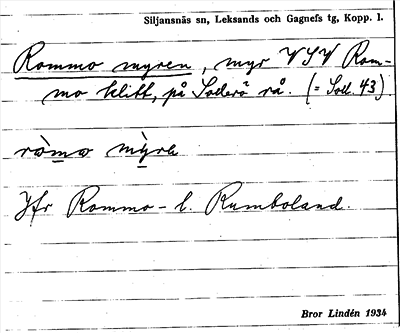 Siljansnäs sn, Leksands och Gagnefs tg, Kopp. l.
Rommo myren, myr VSV Rom-
mo klitt, på Sollerö rå. (= Soll. 43).
ròmo mỳre
Jfr Rommo- l. Rumboland.
Bror Lindén 1934